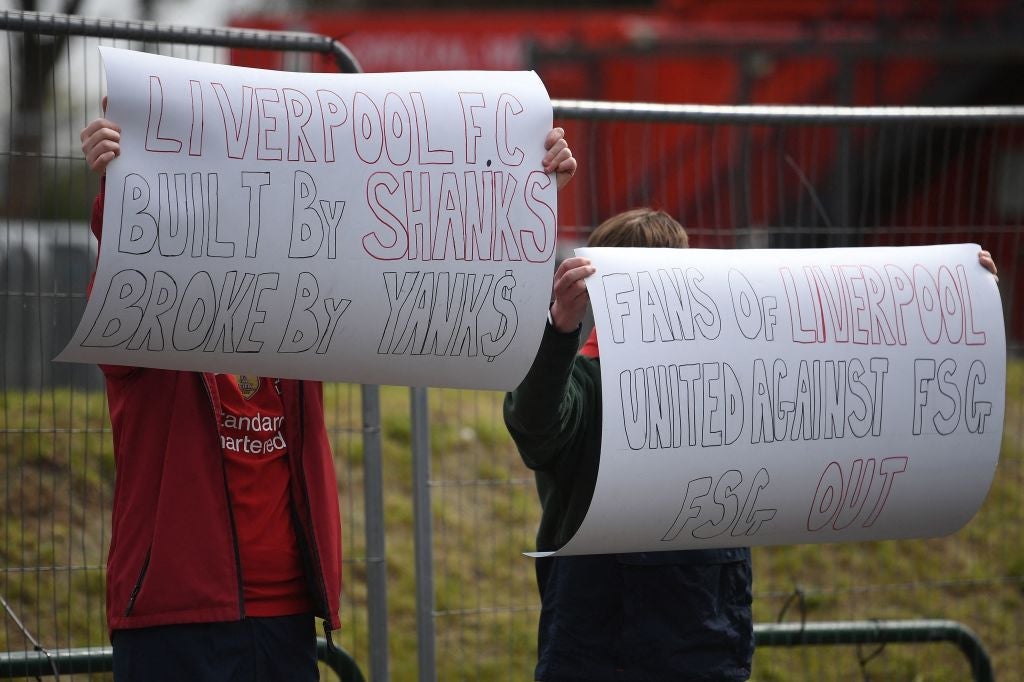 LIVERPOOL F.C
BUILT By SHANKS
BROKE By YANK$
FANS OF LIVERPOOL
UNITED AGAINST FSG
FSG OUT
tandard
artered